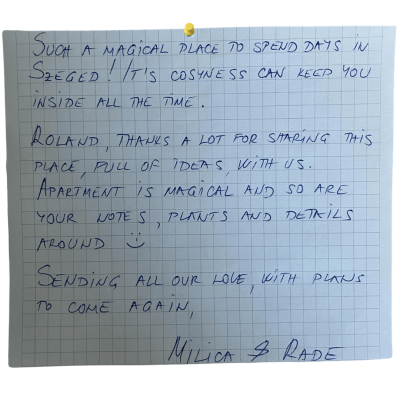 SUCH A MAGICAL PLACE TO SPEND DAYS IN
SZEGED! IT'S COSYNESS CAN KEEP YOU
INSIDE ALL THE TIME.
ROLAND, THANKS A LOT FOR SHARING THIS
PLACE, FULL OF IDEAS, WITH US.
APARTMENT IS MAGICAL AND SO ARE
YOUR NOTES, PLANTS AND DETAILS
AROUND :)
SENDING ALL OUR LOVE, WITH PLANS
TO COME AGAIN,
MILICA & RADE